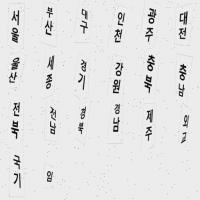 서울 부산 대구 인천 광주 대전
울산 세종 경기 강원 충북 충남
전북 전남 경북 경남 제주 외교
국기 임